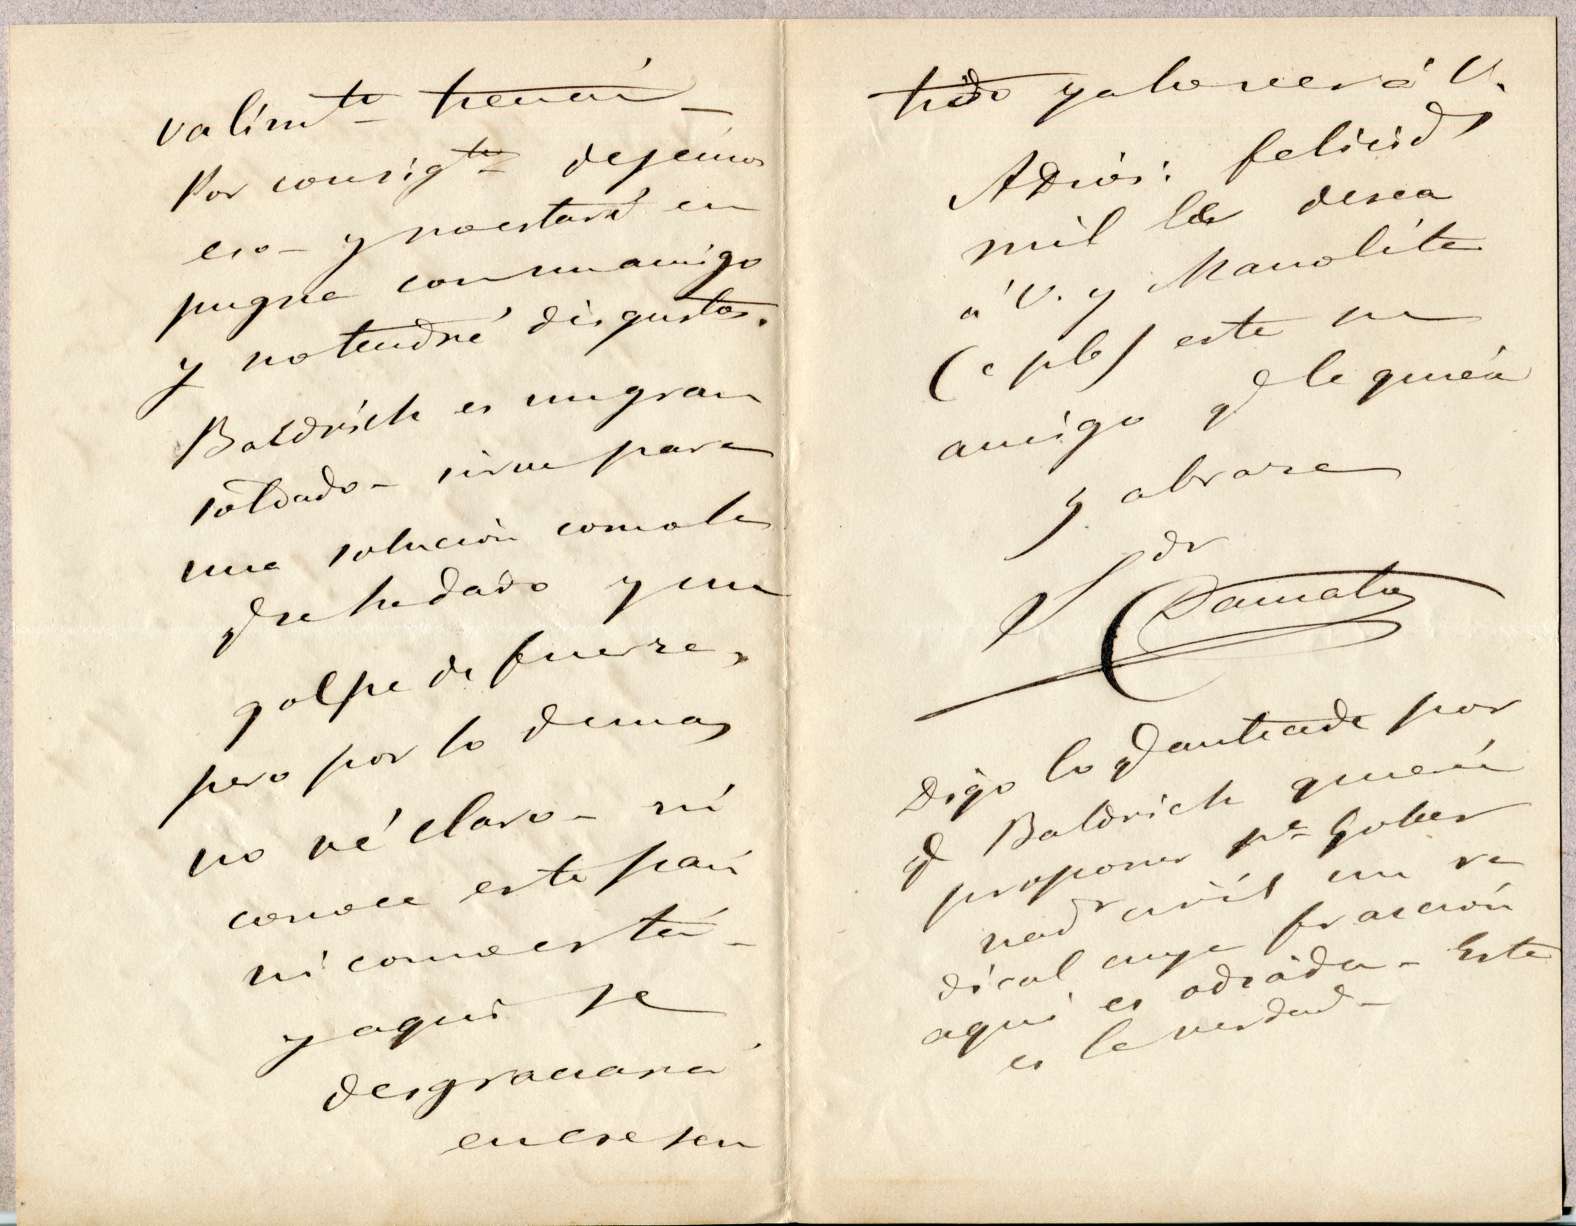 valimto tienen_
Por consigte dejemos
eso – y no estaré en
pugna con un amigo
y no tendré disgustos.
Baldrich es un gran
soldado – sirve para
una solución como la
q se ha dado y un
golpe de fuerza,
pero por lo demas
no vé claro – ni
conoce este pais
ni como está –
y aqui se
desgraciará
en ese sen
tido ya lo verá V.
Adios: felicids
mil les desea
á V. y Manolita
(c p b) este su
amigo q le quiere
y abraza
Sdr
Damato
Digo lo q antecede por
q Baldrich quiere
proponer pa Gober
nadr civil un ra
dical cuya fracción
aqui es odiada – Esta
es la verdad –